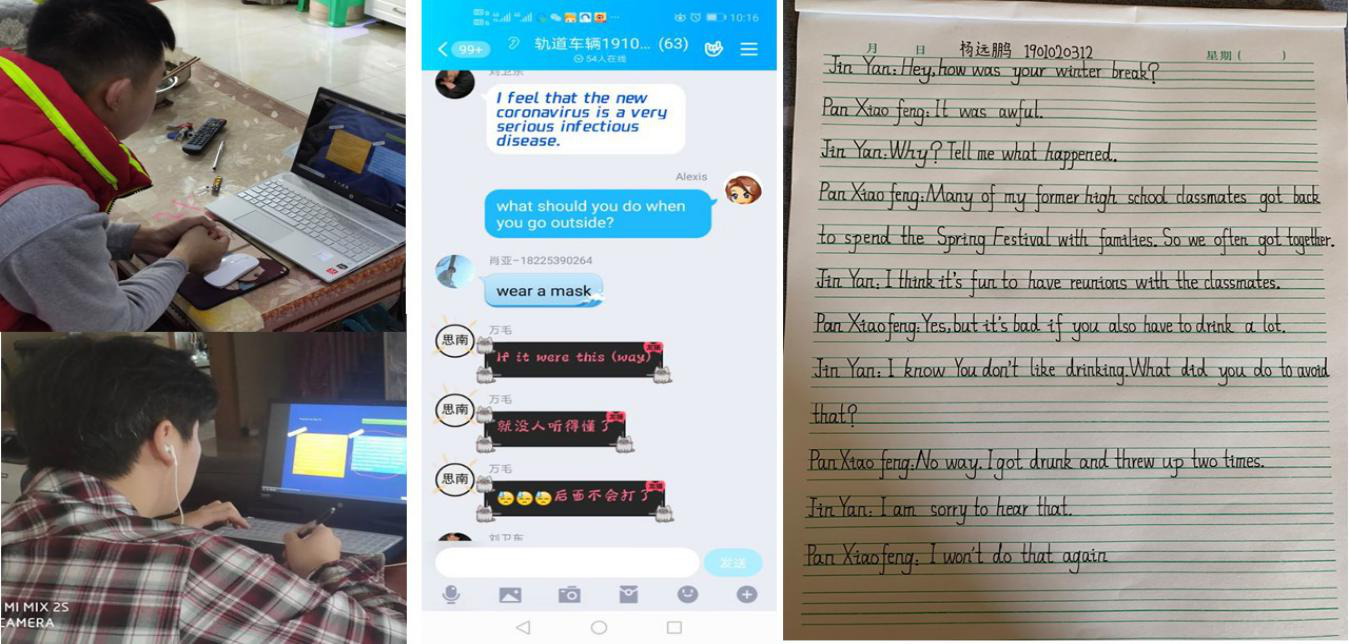 MI MIX 2S
CAMERA
10:16
99+
轨道车辆1910... (63)
54人在线
刘卫东
I feel that the new
coronavirus is a very
serious infectious
disease.
Alexis
what should you do when
you go outside?
肖亚-18225390264
wear a mask
思南
万毛
If it were this (way)
思南
万毛
就没人听得懂了
思南
万毛
后面不会打了
刘卫东
发送
月 日 杨远鹏 1901020312 星期 ( )
Jin Yan: Hey, how was your winter break?
Pan Xiao feng: It was awful.
Jin Yan: Why? Tell me what happened.
Pan Xiao feng: Many of my former high school classmates got back
to spend the Spring Festival with families. So we often got together.
Jin Yan: I think it's fun to have reunions with the classmates.
Pan Xiaofeng: Yes, but it's bad if you also have to drink a lot.
Jin Yan: I know You don't like drinking. What did you do to avoid
that?
Pan Xiao feng: No way. I got drunk and threw up two times.
Jin Yan: I am sorry to hear that.
Pan Xiaofeng: I won't do that again